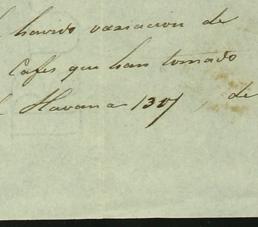 havido variacion de
Cafes que han tomado
Havana 1307, de